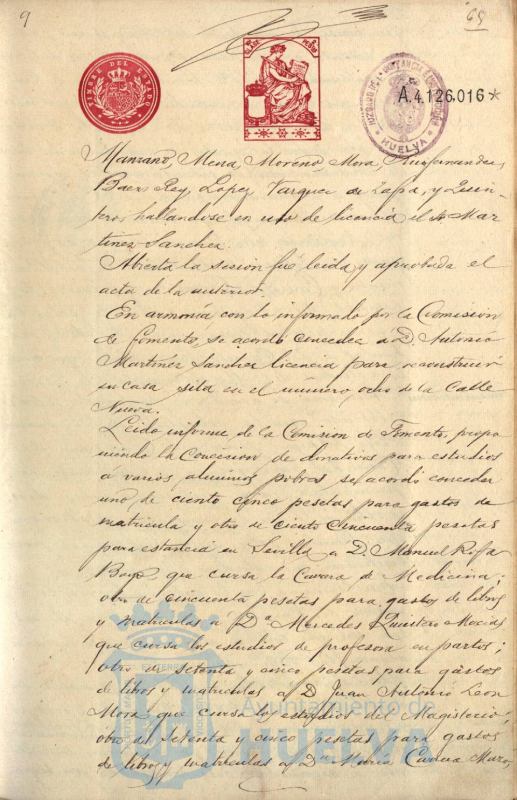 9
65
TIMBRE DEL ESTADO
HUELVA
A.4.126.016*
Manzano, Mena, Moreno, Mora, Ruifernandez,
Baez Rey, Lopez, Vazquez de Zapa, y Quin-
tero, hallandose en uso de licencia el Sr Mar
tinez Sanchez.
Abierta la sesión fué leida y aprobada el
acta de la anterior.
En armonía con lo informado por la Comisión
de Fomento, se acordó conceder a D. Antonio
Martinez Sanchez licencia para reconstruir
su casa sita en el número ocho de la Calle
Nueva.
Leido informe de la Comision de Fomento, propo
niendo la Concesion de donativos para estudios
á varios alumnos pobres se acordó conceder
uno de ciento cinco pesetas para gastos de
matricula y otro de ciento cincuenta pesetas
para estancia en Sevilla a D. Manuel Rofa
que cursa la Carrera de Medicina;
otro de cincuenta pesetas para gastos de libros
y matriculas á Dª Mercedes Quintero Macias
que cursa los estudios de profesora en partos;
otro de setenta y cinco pesetas para gastos
de libros y matriculas á D Juan Antonio Leon
Mora que cursa los estudios del Magisterio;
otro de setenta y cinco pesetas para gastos
de libros y matriculas a Dª Maria Cuerva Muro,
Ayuntamiento de
HUELVA